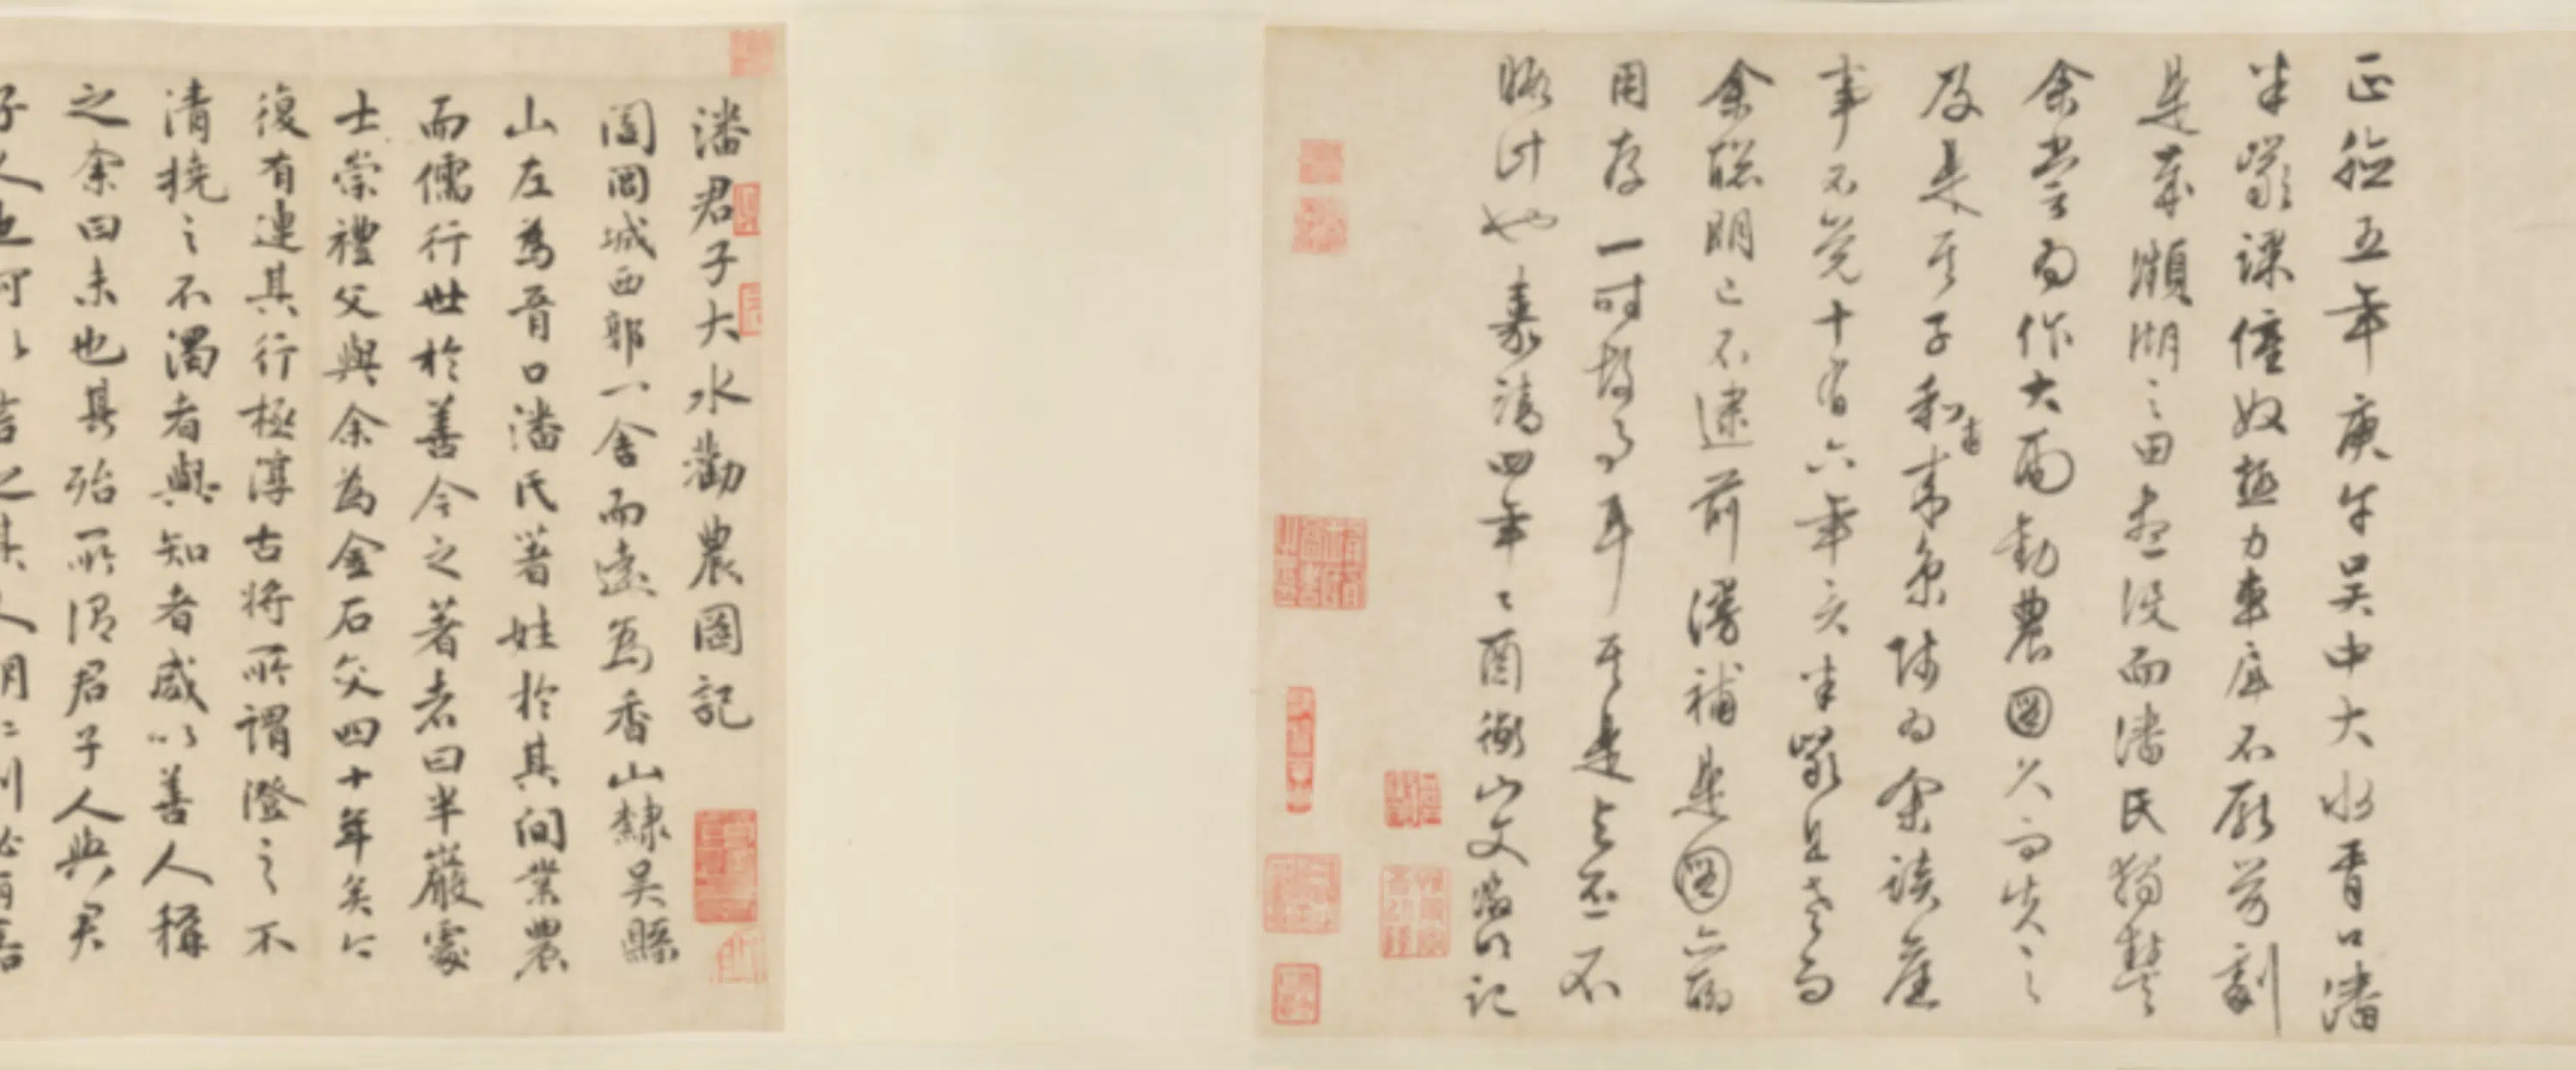 正德五年庚午吴中大水胥口潘
半巖課僮奴極力車戽不厭劇
是歲瀕湖之田盡没而潘氏獨
余嘗為作大雨勸農圖久而失之
及是其子和甫為余談舊
事不覺十有六年矣半巖且老而
余聰明已不逮前漫補是圖亦聊
用存一時故事耳其是與否不
暇計也嘉靖四年乙酉衡山文徵明記
潘君子大水勸農圖記
閶闔城西郭一舍而遠為香山隸吴縣
山左為胥口潘氏著姓於其間業農
而儒行世於善今之著者曰半巖處
士崇禮父與余為金石交四十年矣今
復有連其行極淳古將所謂澄之不
清撓之不濁者與知者咸以善人稱
之余曰未也其殆所謂君子人與君
子人也何以言之其人